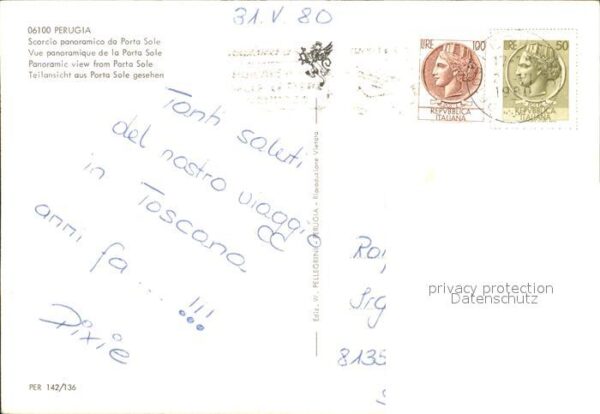 31. V. 80
06100 PERUGIA
Scorcio panoramico da Porta Sole
Vue panoramique de la Porta Sole
Panoramic view from Porta Sole
Teilansicht aus Porta Sole gesehen
LIRE 100
REPVBBLICA
ITALIANA
LIRE 50
REPVBBLICA
ITALIANA
1980
Tanti saluti
del nostro viaggio
in Toscana
anni fa...!!!
Pixie
Ediz. W. PELLEGRINI - PERUGIA - Riproduzione Vietata
privacy protection
Datenschutz
8135
PER 142/136